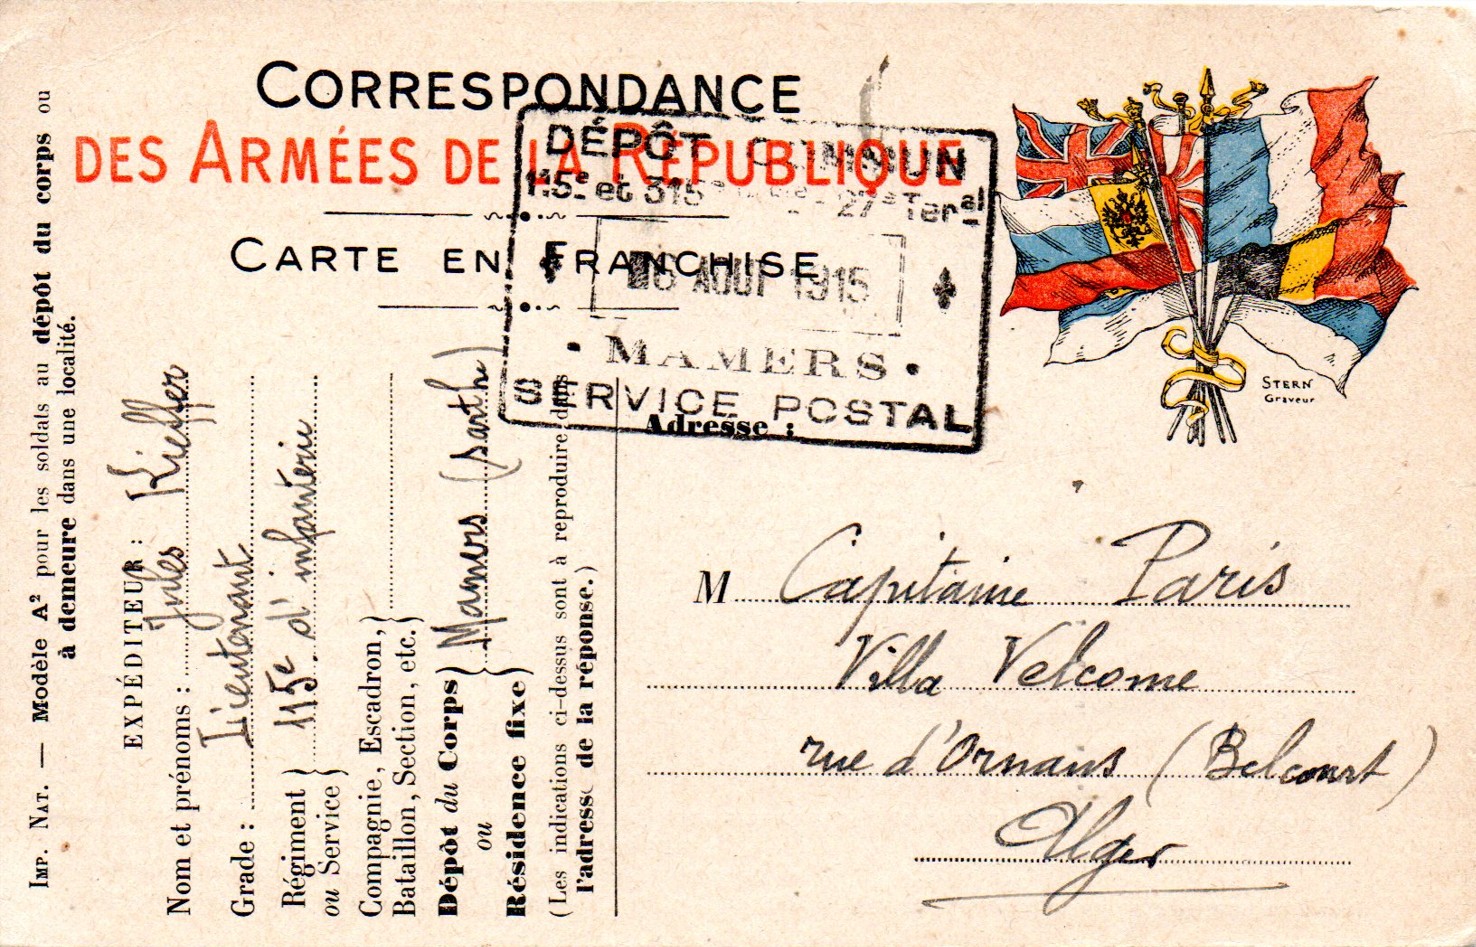 CORRESPONDANCE
DES ARMÉES DE LA RÉPUBLIQUE
CARTE EN FRANCHISE
DÉPÔT COMMUN
115e et 315e 27e Teral
AOUT 1915
• MAMERS •
SERVICE POSTAL
STERN
Graveur
IMP. NAT. — Modèle A² pour les soldats au dépôt du corps ou
à demeure dans une localité.
EXPÉDITEUR :
Nom et prénoms : Jules Kieffer
Grade : Lieutenant
Régiment
ou Service } 115e d'infanterie
Compagnie, Escadron,
Bataillon, Section, etc. }
Dépôt du Corps
ou
Résidence fixe } Mamers (Sarthe)
(Les indications ci-dessus sont à reproduire dans
l'adresse de la réponse.)
Adresse :
M Capitaine Paris
Villa Velcome
rue d'Ornans (Belcourt)
Alger